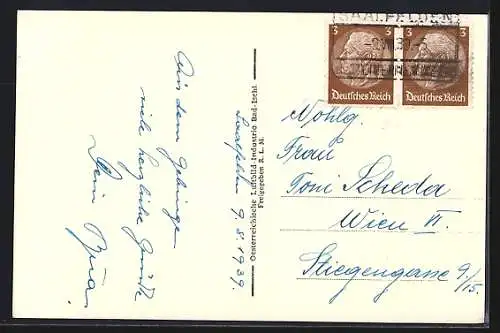 Saalfelden 9.8.1939.
Aus dem Gebirge
viele herzliche Grüße
Dein
Oesterreichische Luftbild-Industrie Bad-Ischl
Freigegeben R. L. M.
SAALFELDEN
3 3
Deutsches Reich Deutsches Reich
Wohlg.
Frau
Toni Scheda
Wien VI.
Stiegengasse 9/15.